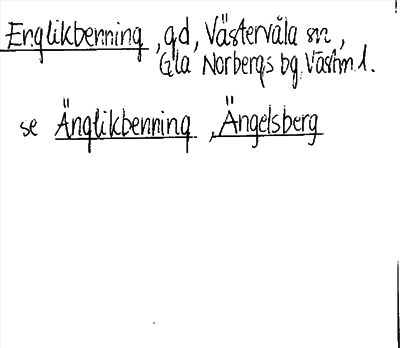 Englikbenning, gd, Västervåla sn,
Gla Norbergs bg, Västm. l.
se Änglikbenning, Ängelsberg